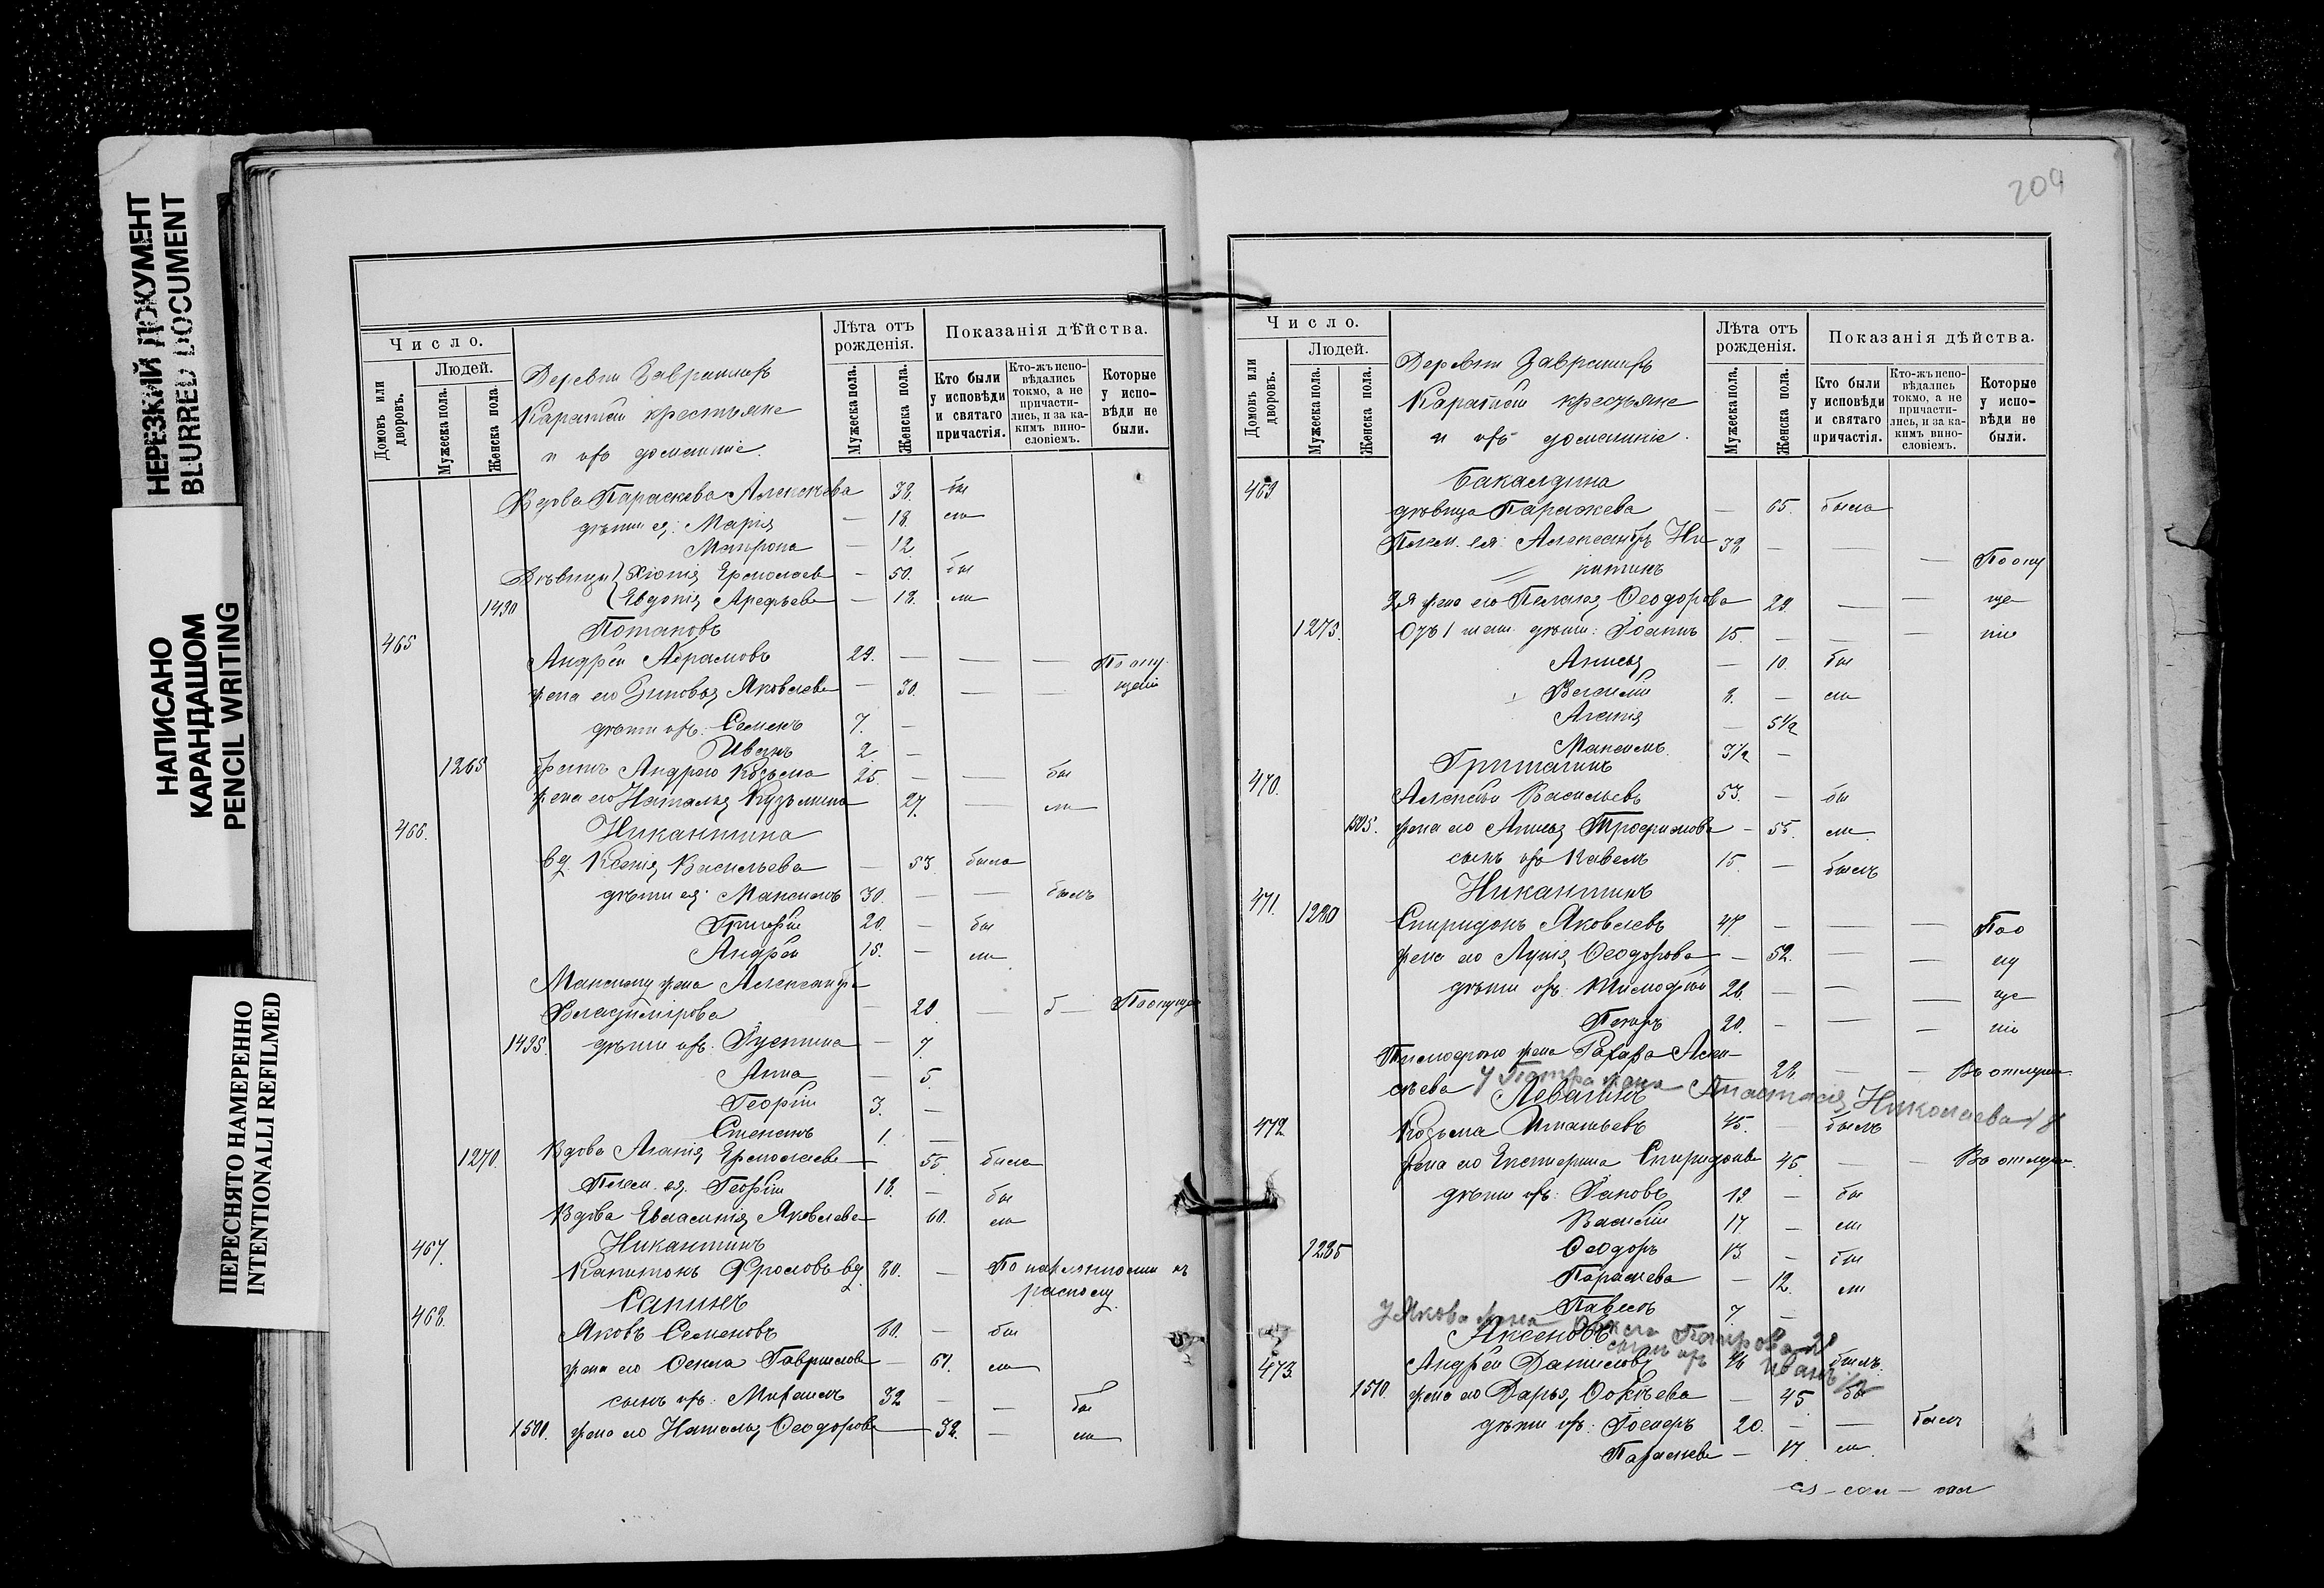 НЕРЕЗКИЙ ДОКУМЕНТ
BLURRED DOCUMENT
НАПИСАНО
КАРАНДАШОМ
PENCIL WRITING
ПЕРЕСНЯТО НАМЕРЕННО
INTENTIONALLI REFILMED
Число.
Домовъ или дворовъ.
Людей.
Мужеска пола.
Женска пола.
Деревни
крестьяне
и ихъ домашніе.
Лѣта отъ рожденія.
Мужеска пола.
Женска пола.
Показанія дѣйства.
Кто были у исповѣди и святаго причастія.
Кто-жъ исповѣдались токмо, а не причастились, и за какимъ винословіемъ.
Которые у исповѣди не были.
Вдова Параскева Алексѣева — 38. бы
дѣти ея: Марія — 18. ли
Матрона — 12
Дѣвицы Хіонія Ермолаева — 50. бы
1490 Евдокія Арефьева — 18. ли
465 Потаповъ
Андрей Абрамовъ 29. — — — По опу
жена его Зиновья Яковлева — 30. — щенію
дѣти ихъ: Семенъ 7. —
Иванъ 2. —
1265 братъ Андрею Козьма 25. — — бы
жена его Наталья Кузьмина 27. — ли
466. Никантина
вд. Ксенія Васильева — 53 была
дѣти ея: Максимъ 30. — — былъ
Григорій 20. — бы
Андрей 15. — ли
Максиму жена Александра
Владимірова — 28 — б —
1495. дѣти ихъ: Іустина — 7.
Анна — 5.
Георгій 3. —
Степанъ 1. —
1270. Вдова Агапія Ермолаева — 55 была
Плем. ея: Георгій 18. — бы
Вдова Евлампія Яковлева 60. ли
467. Никантинъ
Капитонъ Фроловъ вд. 80. — По наклонности къ
расколу.
468. Сапинъ
Яковъ Семеновъ 60. — бы
жена его Ѳекла Гаврилова — 61. ли
сынъ ихъ: Михаилъ 32 — — бы
1500. жена его Наталья Ѳеодорова 32. — ли
209
Число.
Домовъ или дворовъ.
Людей.
Мужеска пола.
Женска пола.
Деревни
крестьяне
и ихъ домашніе.
Лѣта отъ рожденія.
Мужеска пола.
Женска пола.
Показанія дѣйства.
Кто были у исповѣди и святаго причастія.
Кто-жъ исповѣдались токмо, а не причастились, и за какимъ винословіемъ.
Которые у исповѣди не были.
469 Бакалдина
дѣвица Параскева — 65. была
Плем. ея: Александръ Ни 38 — —
китинъ — По опу
2я жена его Пелагея Ѳеодорова 29. — — ще
1275. Отъ 1 дѣти: Іоаннъ 15. — — — нію
Анисья — 10. бы
Василій 8. — ли
Агапія — 5½
Максимъ 3½ —
470. Гришагинъ
Алексѣй Васильевъ 53. — бы
1505. жена его Анисья Трофимова — 55. ли
сынъ ихъ Павелъ 15 — былъ
471. Никантинъ
1280 Спиридонъ Яковлевъ 47. — — — По о
жена его Лукія Ѳеодорова — 52. — — пу
дѣти ихъ: Тимофей 26. — — — ще
Петръ 20. — — — нію
Тимофею жена
28 — — Въ отлучк
У Петра жена Анастасія Николаева 18
472 Левагинъ
Козьма Игнатьевъ 45. — былъ
жена его Екатерина Спиридонов 45 — — Въ отлучк.
дѣти ихъ: Іаковъ 19 — бы
Василій 17 — ли
1285 Ѳеодоръ 13 — бы
Параскева — 12. ли
Павелъ 7. —
У Якова жена Петрова 21
сынъ их Иванъ 1/2
473. Аксеновъ
Андрей Даниловъ 46 былъ.
1510. жена его Дарья Фокѣева — 45 бы
дѣти ихъ: 20. — — былъ
Параскева — 17 ли